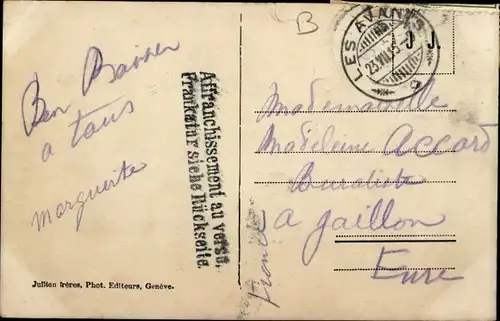 B
LES AVANTS
23.VII.
J.
Bon Baiser
a tous
Marguerite
Affranchissement au verso.
Frankatur siehe Rückseite.
Mademoiselle
Madeleine Accard
Buraliste
a gaillon
Eure
France
Jullien frères, Phot. Editeurs, Genève.